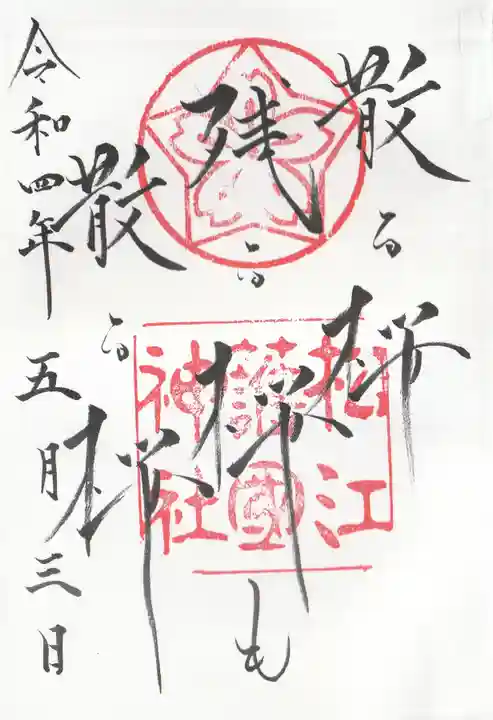 散る桜
残る桜も
散る桜
令和四年五月三日
松江護國神社